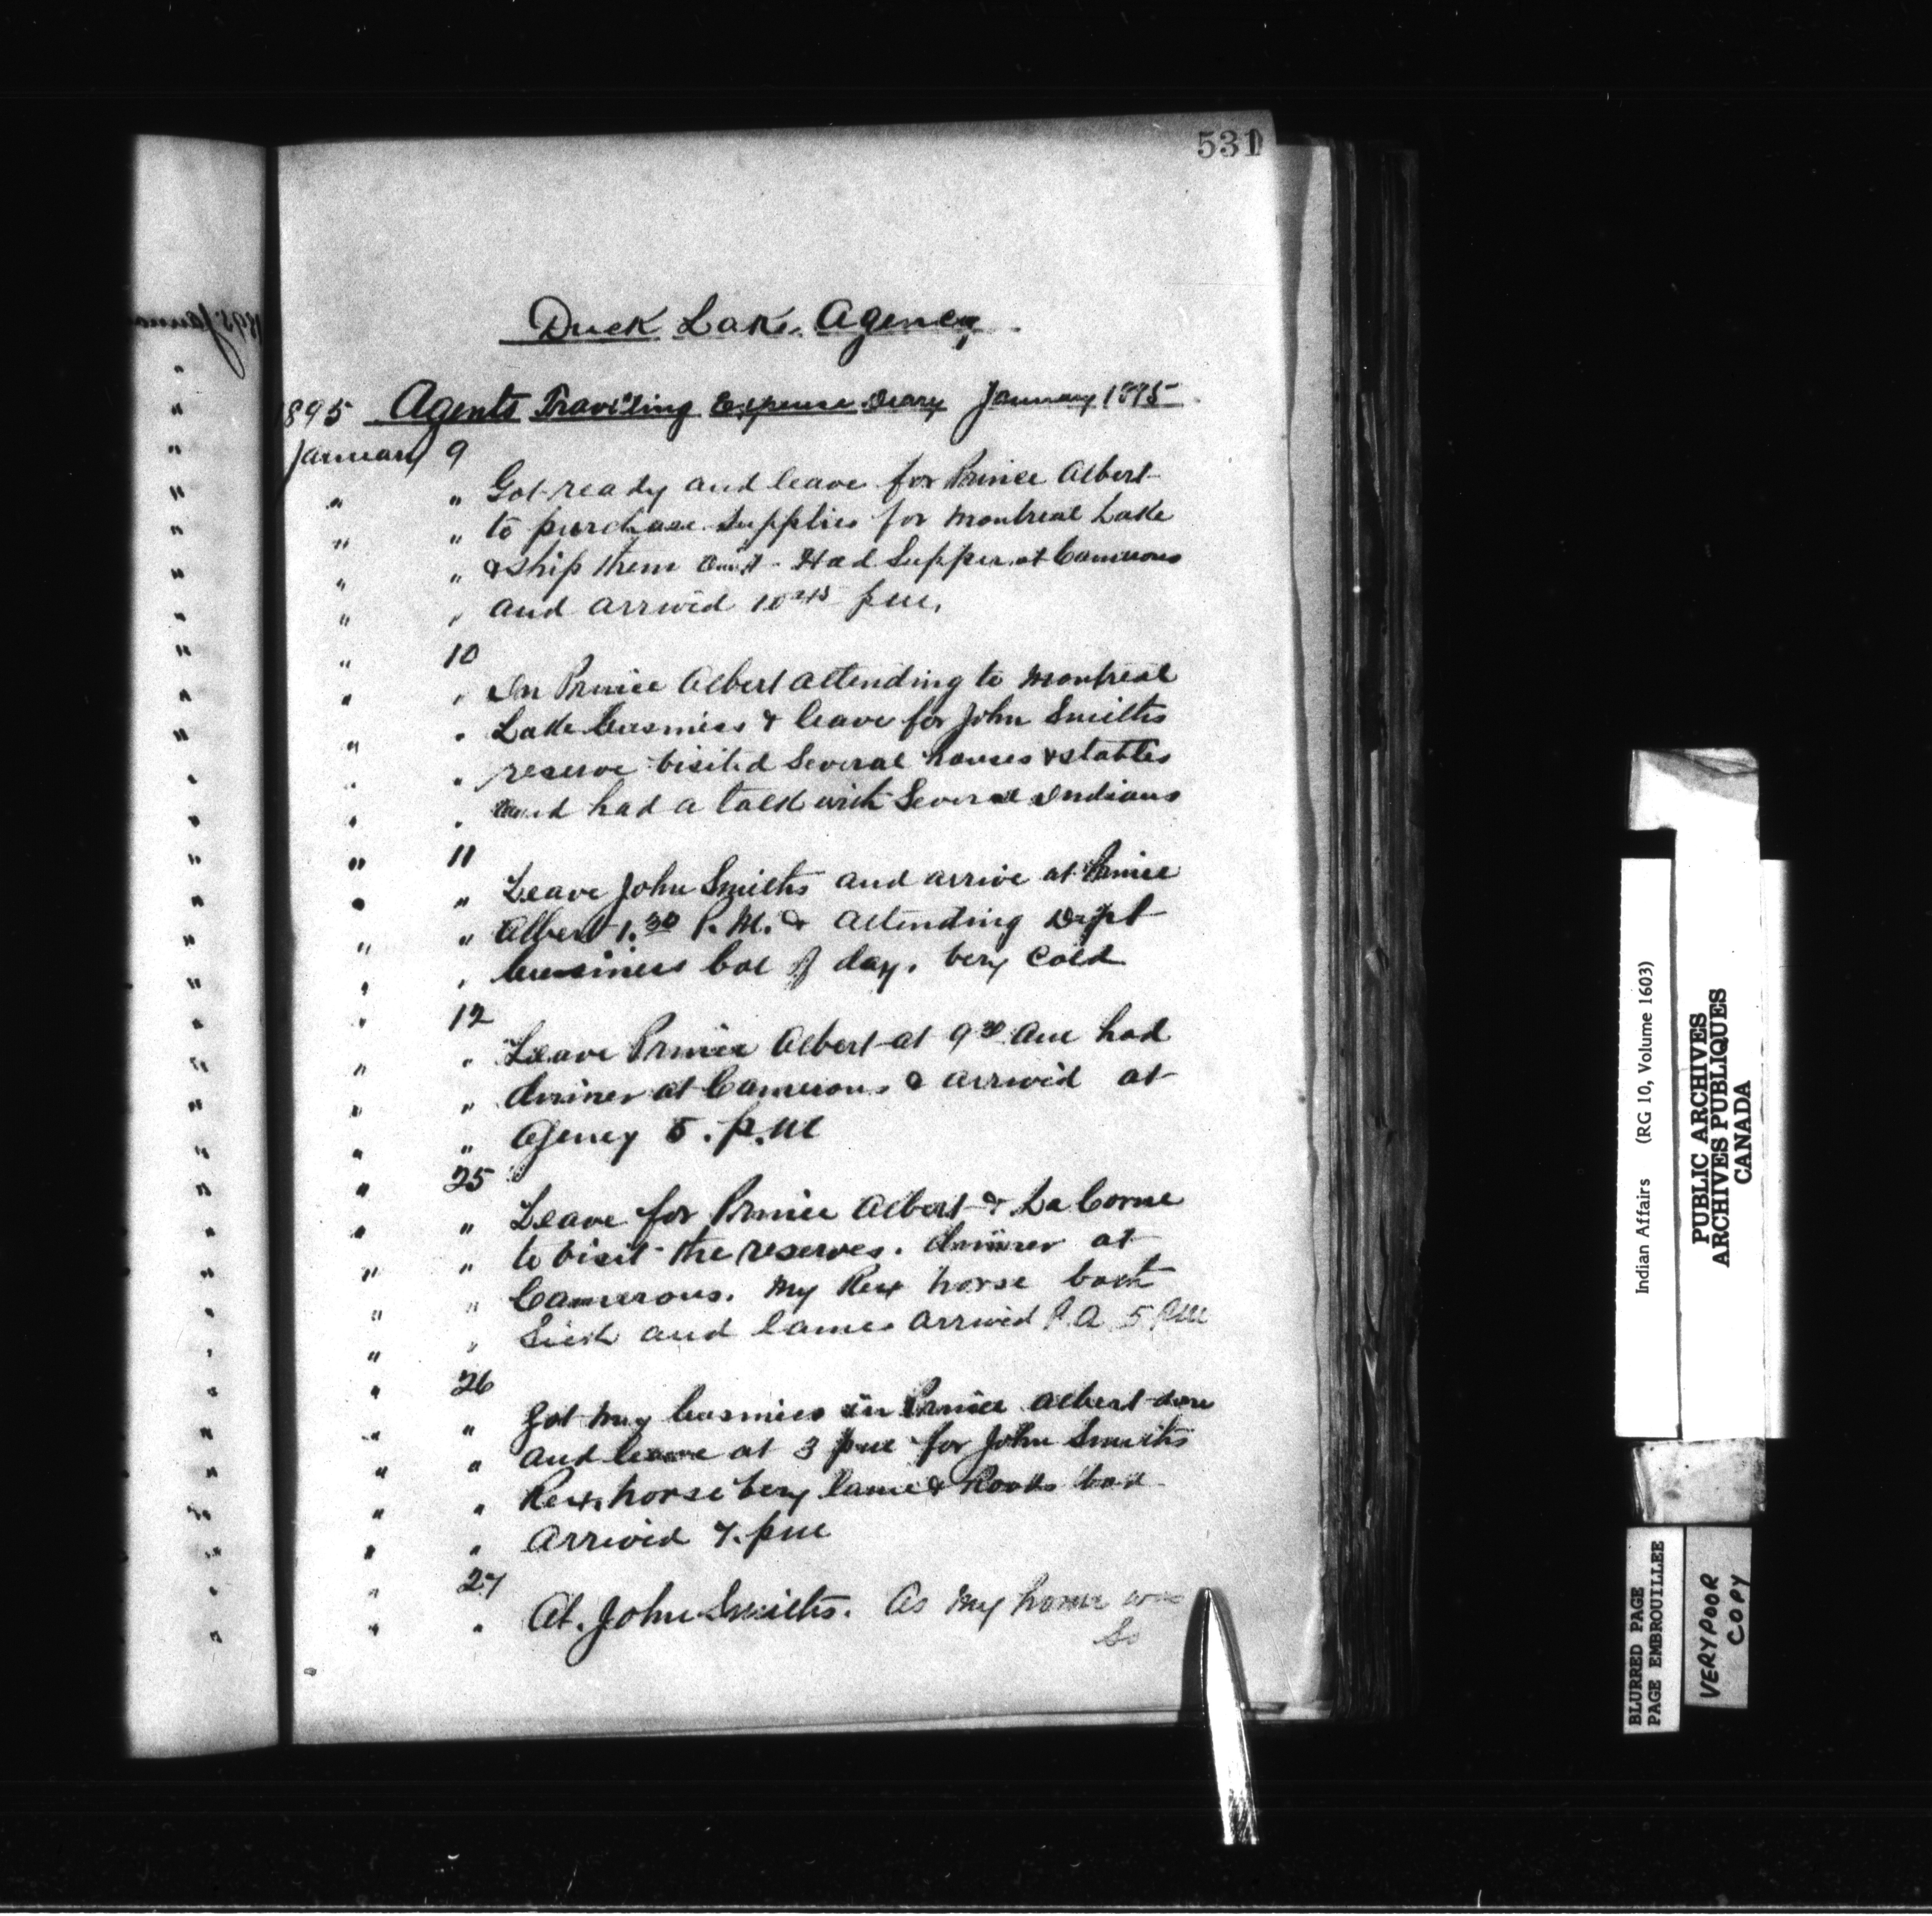 531
Duck Lake Agency
1895 Agents Traviling Expense Diary January 1895
January 9
" " Got ready and leave for Prince Albert
" " to purchase supplies for Montreal Lake
" " & ship them out - Had Supper at Camerons
" " and arrived 10 45 pm.
" 10
" " In Prince Albert attending to Montreal
" " Lake business & leave for John Smiths
" " reserve visited several houses & stables
" " and had a talk with several Indians
" 11
" " Leave John Smiths and arrive at Prince
" " Albert 1.30 P.M. & attending Dept
" " business bal of day. very cold
" 12
" " Leave Prince Albert at 9 30 am had
" " dinner at Camerons & arrived at
" " Agency 5. p.m
" 25
" " Leave for Prince Albert & La Corne
" " to visit the reserves. dinner at
" " Camerons. my Rex horse both
" " sick and lame arrived P.A 5 pm
" 26
" " Got my business in Prince Albert done
" " and leave at 3 pm for John Smiths
" " Rex horse very lame & Roads bad
" " Arrived 7. pm
" 27
" " At. John Smiths. As my horse was
So
1895 January
Indian Affairs (RG 10, Volume 1603)
PUBLIC ARCHIVES
ARCHIVES PUBLIQUES
CANADA
BLURRED PAGE
PAGE EMBROUILLEE
VERY POOR
COPY